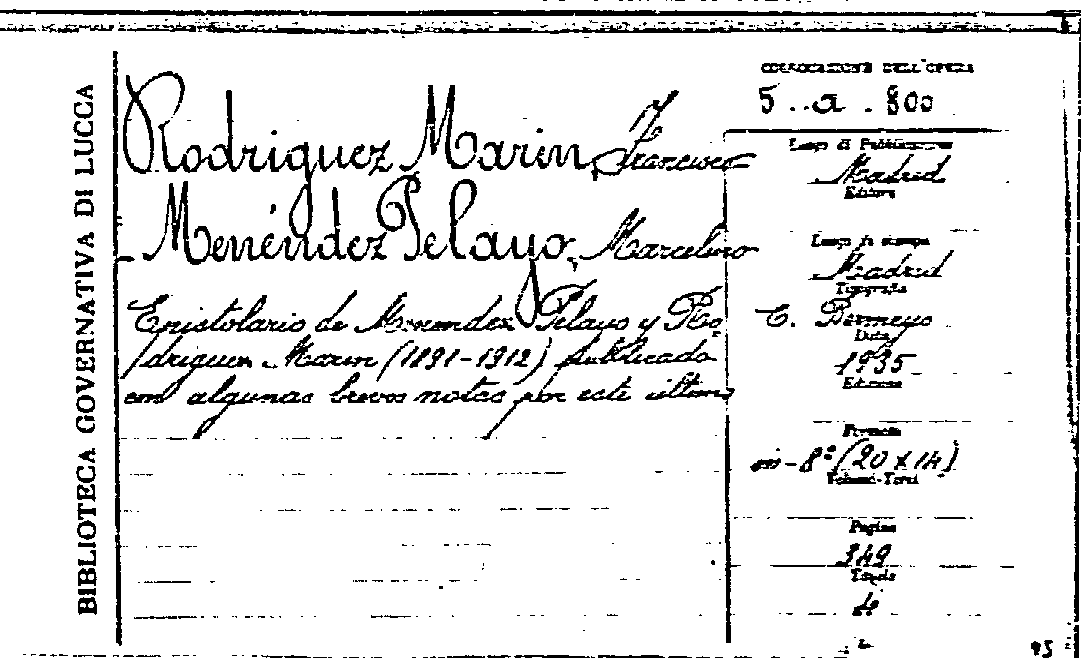 BIBLIOTECA GOVERNATIVA DI LUCCA
Rodriguez Marin, Francisco
- Menéndez Pelayo, Marcelino
Epistolario de Menendez Pelayo y Ro
driguez Marin (1891-1912) publicado
con algunas breves notas por este ultimo
COLLOCAZIONE DELL'OPERA
5..a.800
Luogo di Pubblicazione
Madrid
Editore
Luogo di stampa
Madrid
Tipografia
C. Bermejo
Data
1935
Edizione
Formato
in-8° (20 x 14)
Volumi-Tomi
Pagine
349
Tavole
95